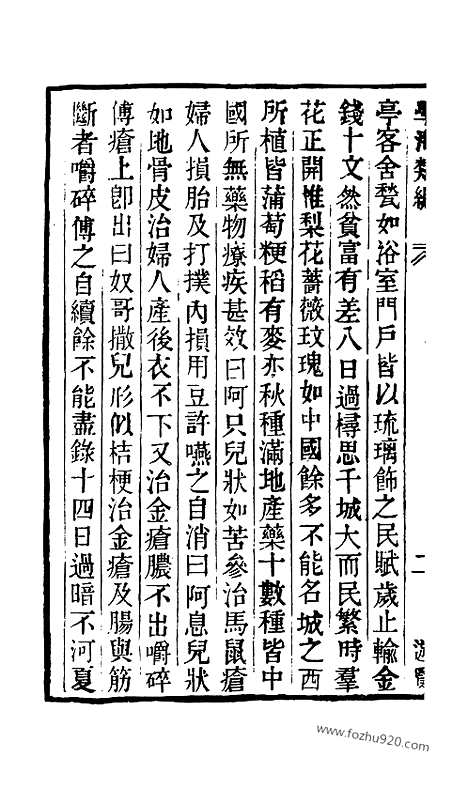 學海類編
二
游覽
亭客舍甃如浴室門戶皆以琉璃飾之民賦歲止輸金
錢十文然貧富有差八日過㭕思干城大而民繁時羣
花正開惟梨花薔薇玫瑰如中國餘多不能名城之西
所植皆蒲萄粳稻有麥亦秋種滿地產藥十數種皆中
國所無藥物療疾甚效曰阿只兒狀如苦參治馬鼠瘡
婦人損胎及打撲內損用豆許嚥之自消曰阿息兒狀
如地骨皮治婦人產後衣不下又治金瘡膿不出嚼碎
傅瘡上卽出曰奴哥撒兒形似桔梗治金瘡及腸與筋
斷者嚼碎傅之自續餘不能盡錄十四日過暗不河夏
www.fozhu920.com